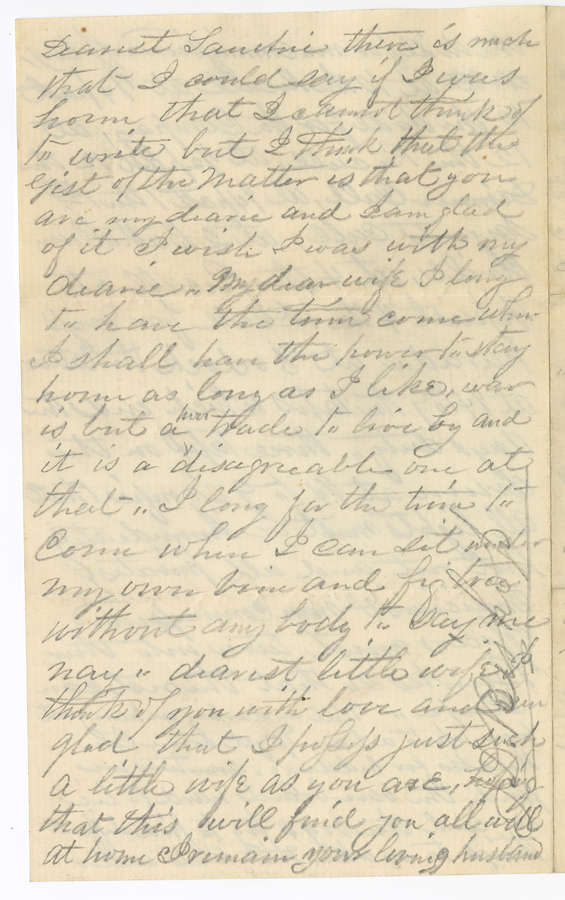 Dearest        there is much
that I could say if I was
home that I cannot think of
to write but I think that the
Gist of the Matter is that you
are my dearie and I am glad
of it I wish I was with my
dearie ,, My dear wife I long
to have the time come when
I shall have the power to Stay
home as long as I like, war
is but a poor trade to live by and
it is a disagreeable one at
that ,, I long for the time to
Come when I can sit under
my own vine and fig tree
without any body to say me
nay ,, dearest little wife I
think of you with love and am
glad that I possess just such
a little wife as you are, hoping
that this will find you all well
at home I remain your loving husband